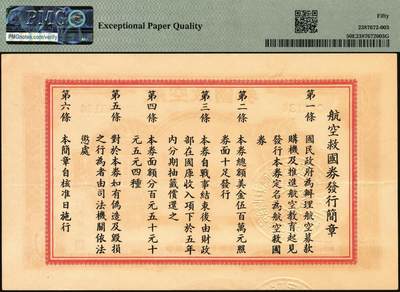 PMG
PMGnotes.com/verify
Exceptional Paper Quality
Fifty
2387672-003
50E2387672003G
航空救國券發行簡章
第一條
國民政府為辦理航空募款
購機及推進航空教育起見
發行本券定名為航空救國
券
第二條
本券總額美金伍百萬元照
券面十足發行
第三條
本券自戰事結束後由財政
部在國庫收入項下於五年
內分期抽籤償還之
第四條
本券面額分百元五十元十
元五元四種
第五條
對於本券如有偽造及毀損
之行為者由司法機關依法
懲處
第六條
本簡章自核准日施行